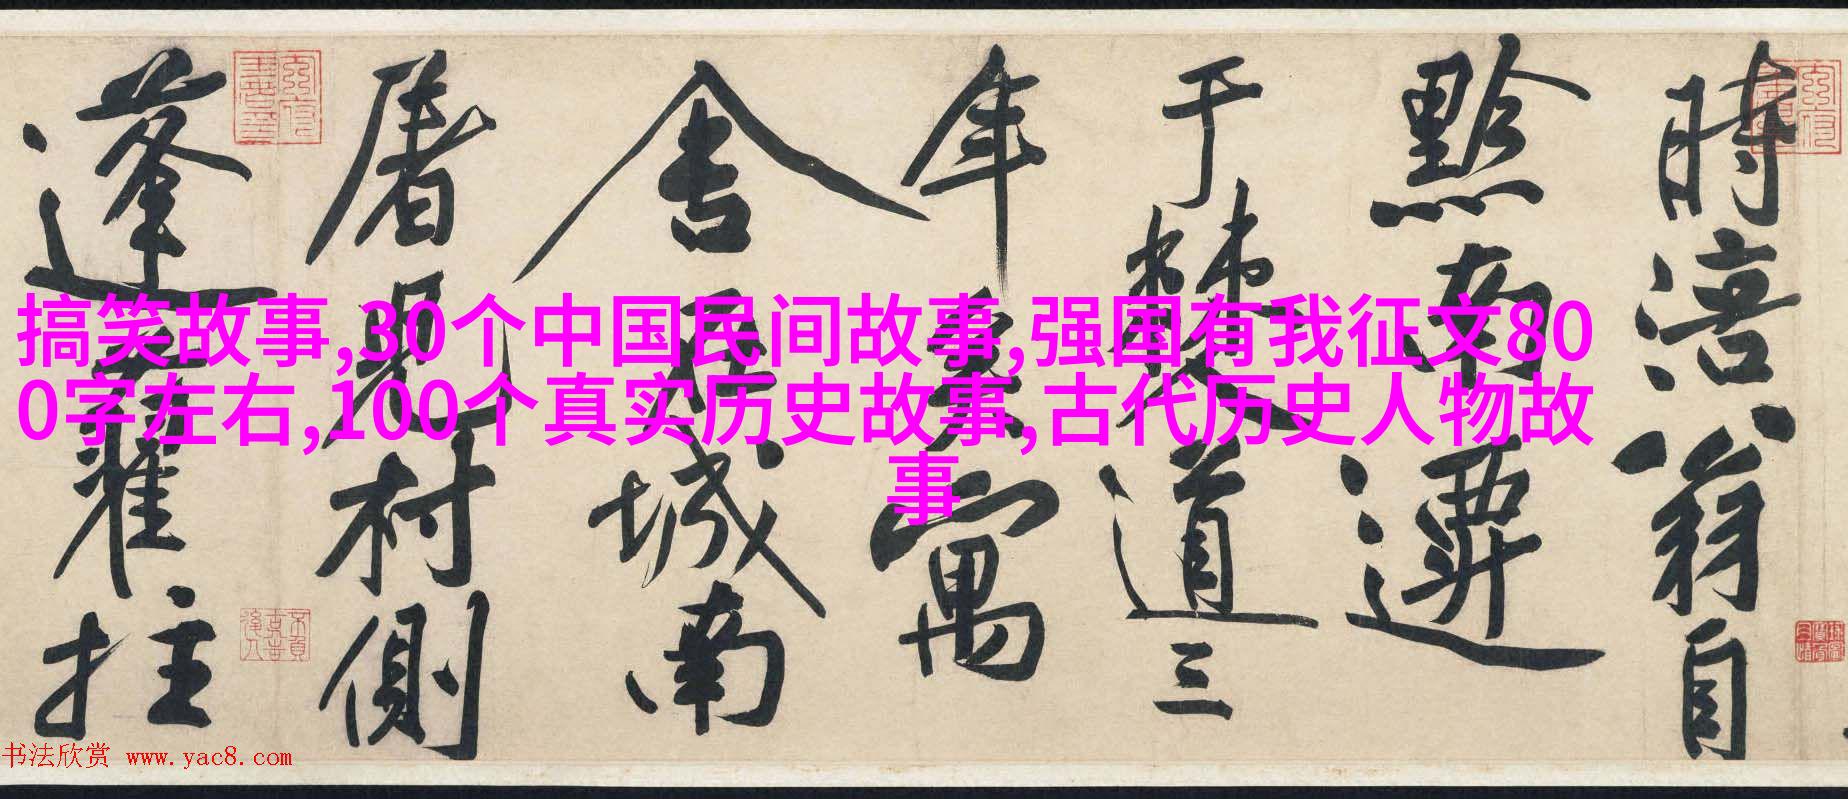 時涪翁自
黔南遷
于僰道三
年矣寓
舍居城南
屠兒村側
蓬藋拄
搞笑故事,30个中国民间故事,强国有我征文80
0字左右,100个真实历史故事,古代历史人物故
事
书法欣赏 www.yac8.com